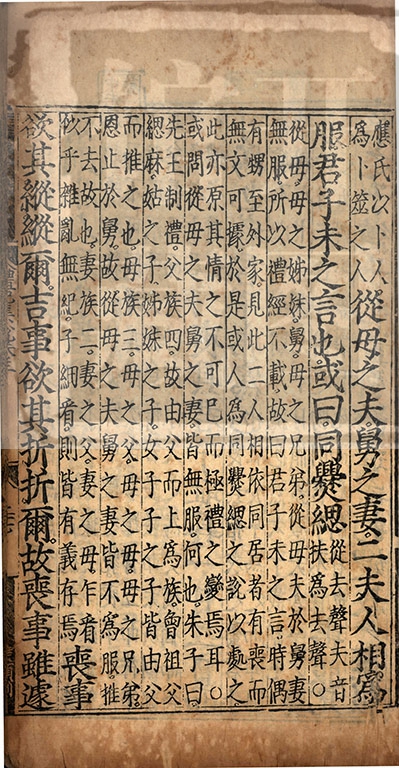 應氏以卜人
爲卜筮之人
從母之夫舅之妻二夫人相爲
服君子未之言也或曰同爨緦
從去聲夫音
扶爲去聲○
從母母之姊妹舅母之兄弟從母夫於舅妻
無服所以禮經不載故曰君子未之言時偶
有甥至外家見此二人相依同居者有喪而
無文可據於是或人爲同爨緦之說以處之
此亦原其情之不可已而極禮之變焉耳○
或問從母之夫舅之妻皆無服何也朱子曰
先王制禮父族四故由父而上爲族曾祖父
緦麻姑之子姊妹之子女子子之子皆由父
而推之也母族三母之父母之母母之兄弟
恩止於舅故從母之夫舅之妻皆不爲服推
不去故也妻族二妻之父妻之母乍看
似乎雜亂無紀子細看則皆有義存焉
喪事
欲其縱縱爾吉事欲其折折爾故喪事雖遽